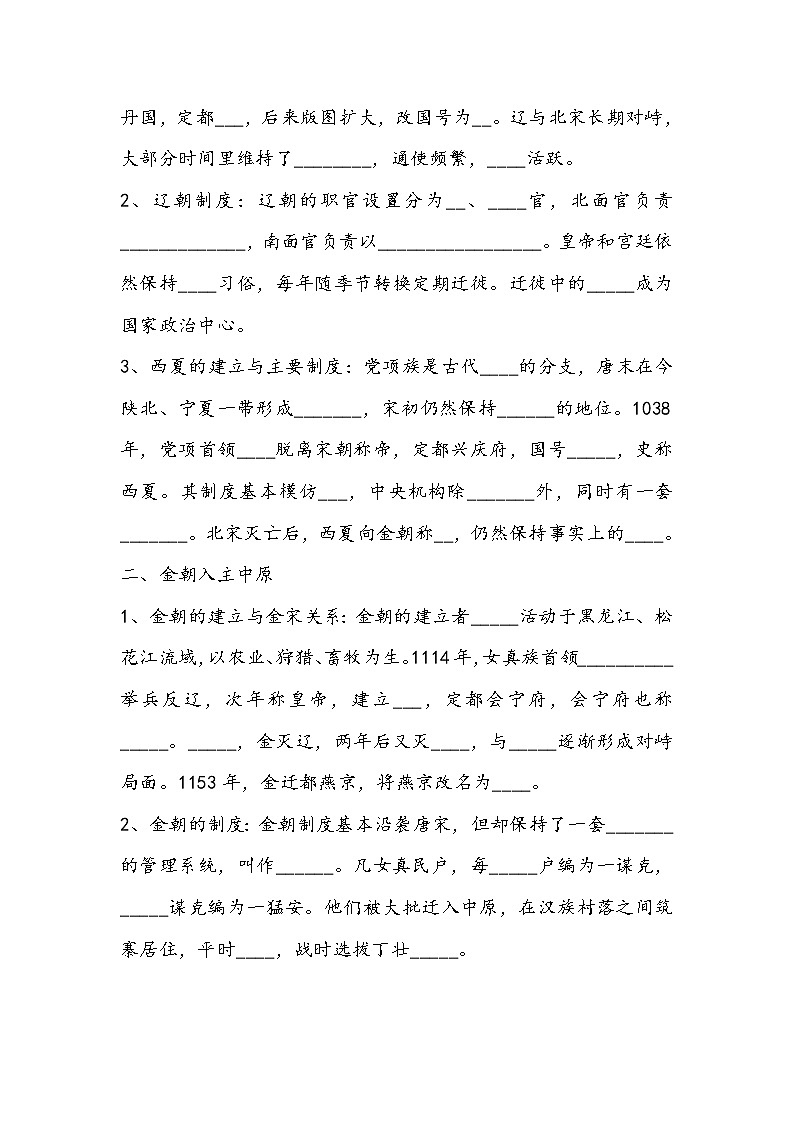 丹国，定都___，后来版图扩大，改国号为__。辽与北宋长期对峙，
大部分时间里维持了________，通使频繁，____活跃。
2、辽朝制度：辽朝的职官设置分为__、____官，北面官负责
_____________，南面官负责以_________________。皇帝和宫廷依
然保持____习俗，每年随季节转换定期迁徙。迁徙中的_____成为
国家政治中心。
3、西夏的建立与主要制度：党项族是古代____的分支，唐末在今
陕北、宁夏一带形成_______，宋初仍然保持______的地位。1038
年，党项首领____脱离宋朝称帝，定都兴庆府，国号_____，史称
西夏。其制度基本模仿___，中央机构除_______外，同时有一套
_______。北宋灭亡后，西夏向金朝称__，仍然保持事实上的____。
二、金朝入主中原
1、金朝的建立与金宋关系：金朝的建立者_____活动于黑龙江、松
花江流域，以农业、狩猎、畜牧为生。1114年，女真族首领__________
举兵反辽，次年称皇帝，建立___，定都会宁府，会宁府也称
_____。_____，金灭辽，两年后又灭____，与_____逐渐形成对峙
局面。1153年，金迁都燕京，将燕京改名为____。
2、金朝的制度：金朝制度基本沿袭唐宋，但却保持了一套_______
的管理系统，叫作______。凡女真民户，每_____户编为一谋克，
_____谋克编为一猛安。他们被大批迁入中原，在汉族村落之间筑
寨居住，平时____，战时选拔丁壮_____。